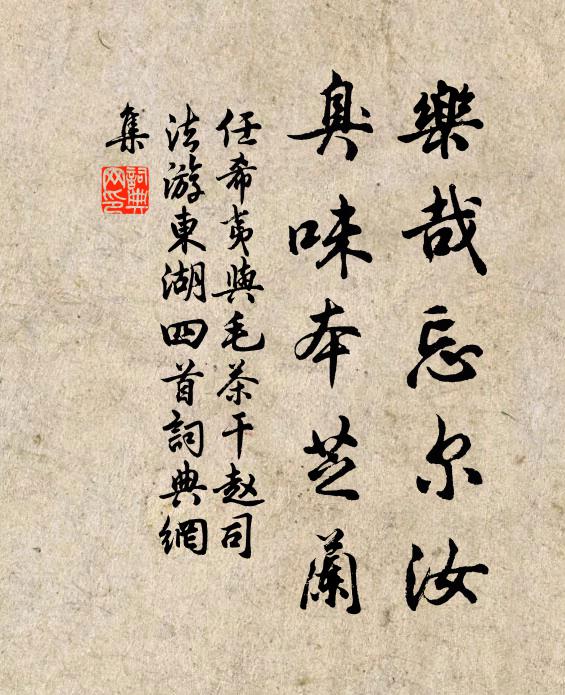 樂哉忘尔汝
臭味本芝蘭
任希夷與毛茶干赵司
法游東湖四首詞典網
集
詞典網印